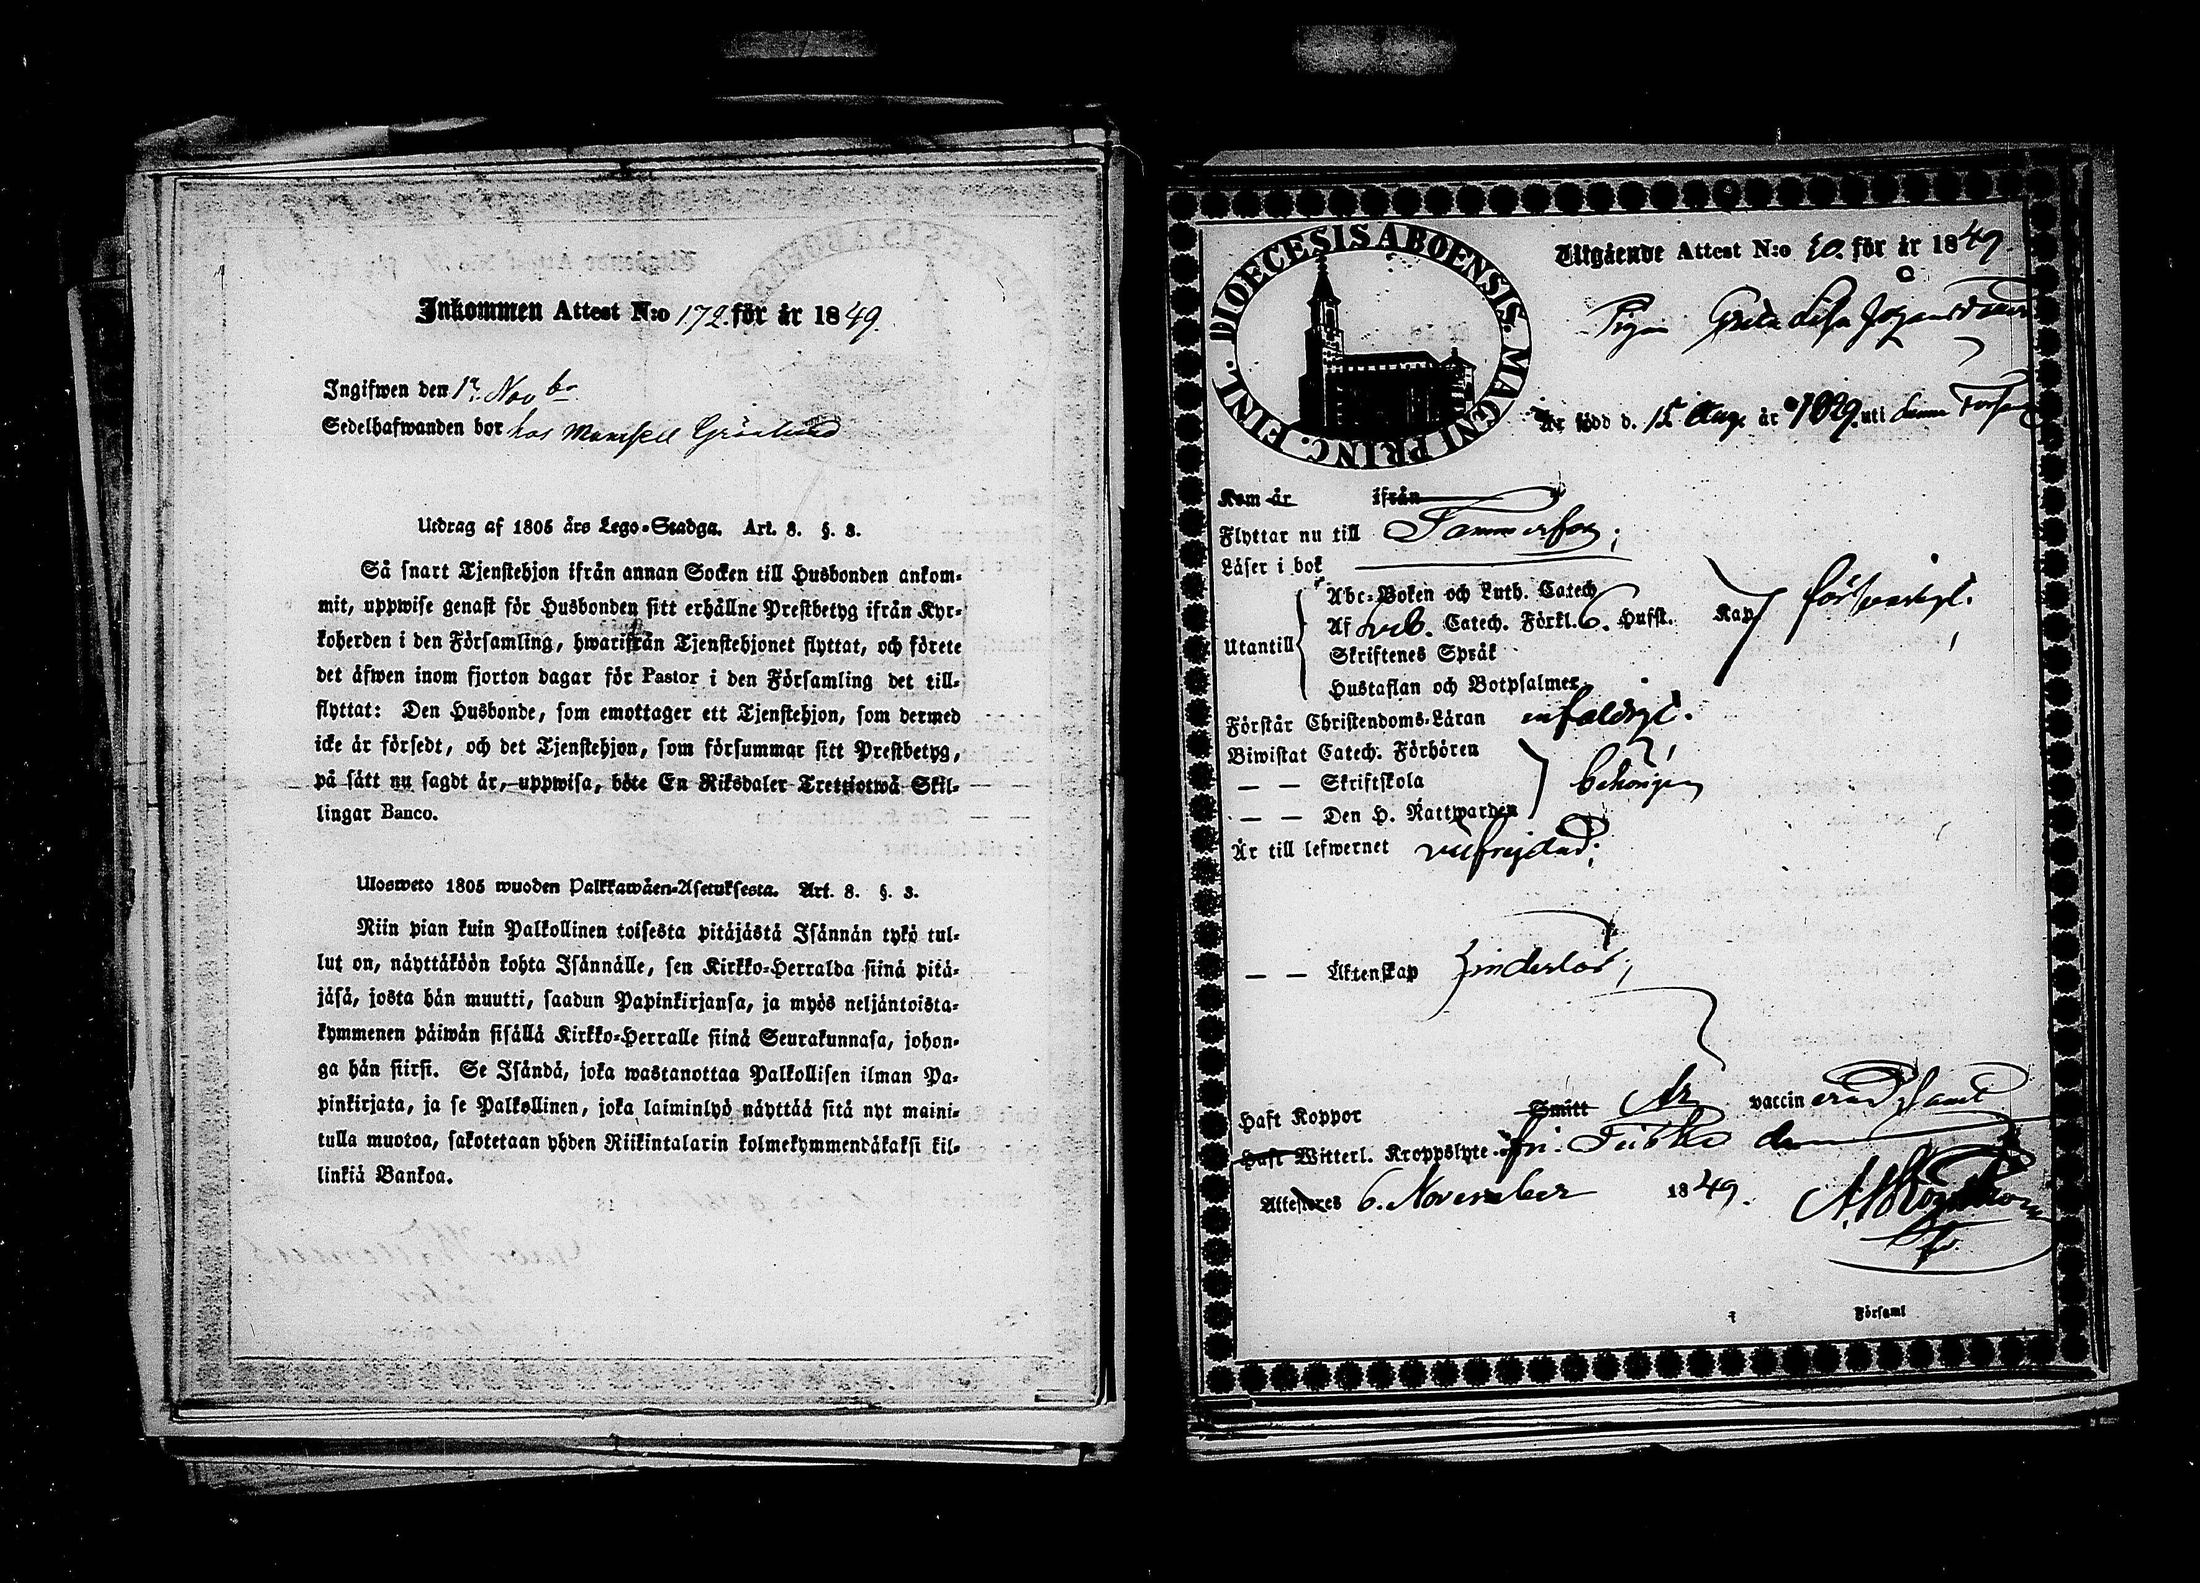 Inkommen Attest N:o 172. för år 1849.
Ingifwen den 1 Nov
Sedelhafwanden bor hos Mamsell Grönlund
Utdrag af 1805 års Lego-Stadga. Art. 8. §. 3.
Så snart Tjenstehjon ifrån annan Socken till Husbonden ankom-
mit, uppwise genast för Husbonden sitt erhållne Prestbetyg ifrån Kyr-
koherden i den Församling, hwarifrån Tjenstehjonet flyttat, och förete
det äfwen inom fjorton dagar för Pastor i den Församling det till-
flyttat: Den Husbonde, som emottager ett Tjenstehjon, som dermed
icke är försedt, och det Tjenstehjon, som försummar sitt Prestbetyg,
på sätt nu sagdt är, uppwisa, böte En Riksdaler Trettiotwå Skil-
lingar Banco.
Ulosweto 1805 wuoden Palkkawäen-Asetuksesta. Art. 8. §. 3.
Niin pian kuin Palkollinen toisesta pitäjästä Isännän tykö tul-
lut on, näyttäköön kohta Isännälle, sen Kirkko-Herralda siinä pitä-
jäsä, josta hän muutti, saadun Papinkirjansa, ja myös neljäntoista-
kymmenen päiwän sisällä Kirkko-Herralle siinä Seurakunnasa, johon-
ga hän siirsi. Se Isändä, joka wastanottaa Palkollisen ilman Pa-
pinkirjata, ja se Palkollinen, joka laiminlyö näyttää sitä nyt maini-
tulla muotoa, sakotetaan yhden Riikintalarin kolmekymmendäkaksi kil-
linkiä Bankoa.
DIOECESIS ABOENSIS. MAGNI PRINC. FINL.
Utgående Attest N:o 20. för år 1849.
Pigan Greta Lisa
Är född d. 15 Aug. år 1829. uti denna Förs
Kom år ifrån
Flyttar nu till Tammerfors;
Läser i bok
Abc-Boken och Luth. Catech.
Utantill Af Catech. Förkl. 6. Hufst. Kap. försvarligt.
Skriftenes Språk
Hustaflan och Botpsalmer
Förstår Christendoms-Läran enfaldigt.
Biwistat Catech. Förhören
— — Skriftskola behörigen
— — Den H. Nattwarden
Är till lefwernet välfrejdad;
— — Äktenskap hinderlös;
Haft Koppor Smitt Är vaccinerad samt
Haft Witterl. Kroppslyte fri.
Attesteres 6. November 1849.
Församl